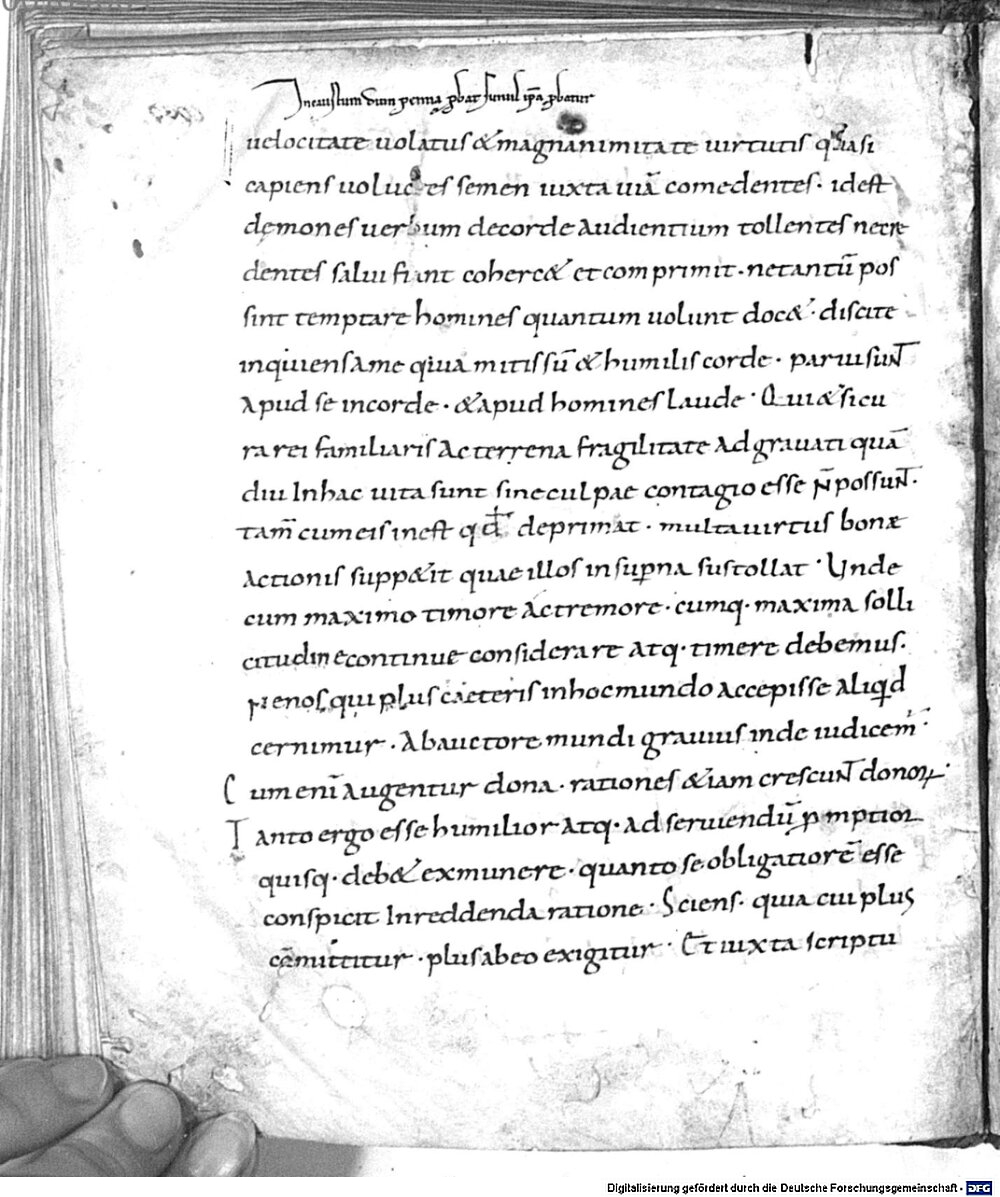 Incaustum dum penna ꝓbat simul ip̄a ꝓbatur
uelocitate uolatus & magnanimitate uirtutis quasi
capiens uolucres semen iuxta uiā comedentes · idest
demones uerbum decorde audientium tollentes necre
dentes salui fiant coherc& et comprimit · netantū pos
sint temptare homines quantum uolunt doc& · discite
inquiens ame quia mitis sū & humilis corde · parui suNT̄
apud se incorde · & apud homines laude · Qui & si cu
ra rei familiaris ac terrena fragilitate adgrauati quā
diu In hac uita sunt sine culpae contagio esse n̄ possuNT̄ ·
tam̄ cum eis inest qđ deprimat · multa uirtus bonae
actionis supp&it quae illos in suꝑna sustollat · Unde
cum maximo timore ac tremore · cumq· maxima solli
citudine continue considerare atq· timere debemus ·
Ne nos qui plus caeteris in hoc mundo accepisse aliqd
cernimur · Ab auctore mundi grauius inde iudicem̄ ·
Cum enī augentur dona · rationes &iam crescuNT donoꝝ ·
Tanto ergo esse humilior atq· ad seruiendū ꝓmptior
quisq· deb& ex munere · quanto se obligatiorē esse
conspicit In reddenda ratione · Sciens · quia cui plus
cōmittitur · plus ab eo exigitur · Et iuxta scriptu
Digitalisierung gefördert durch die Deutsche Forschungsgemeinschaft - DFG